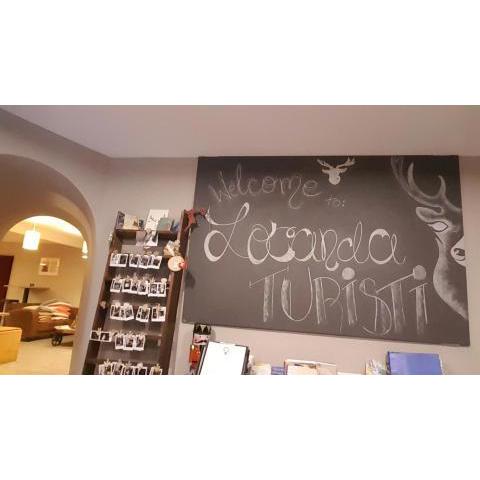 Welcome
to:
Locanda
TURISTI